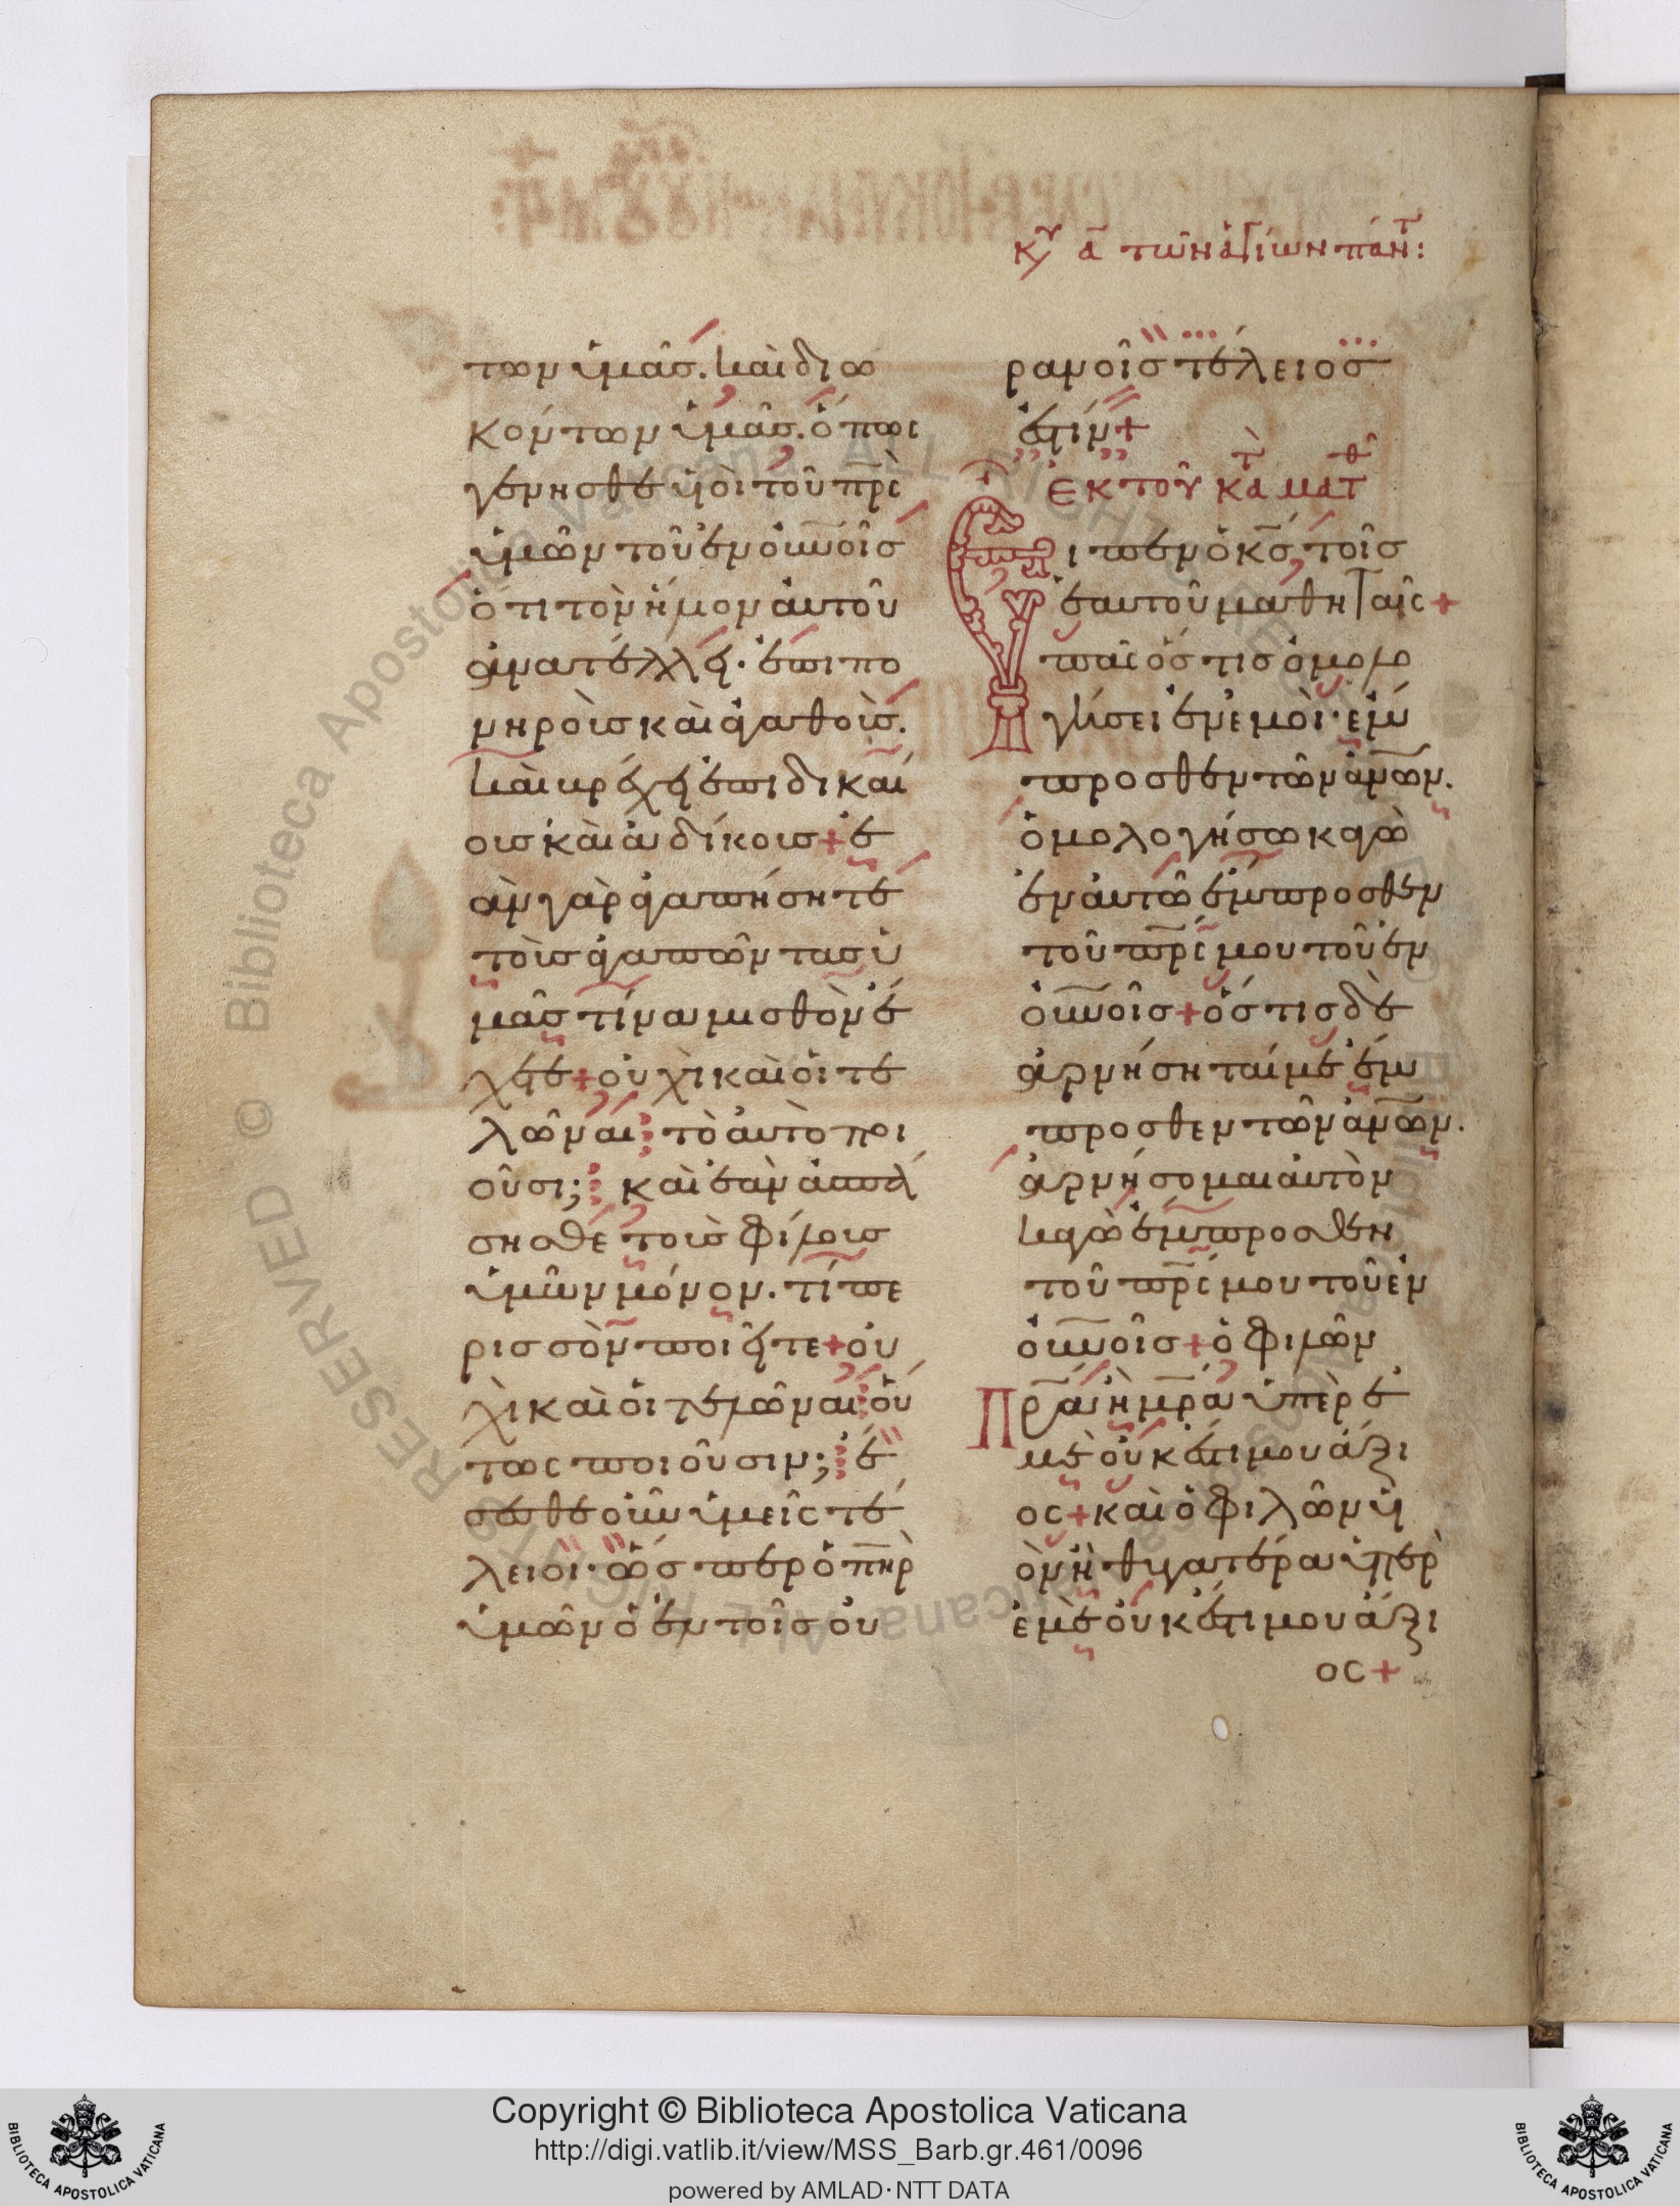 κυ α τῶν ἁγίων πάντ:
των ὑμᾶς. καὶ διω
κόντων ὑμᾶς. ὅπως
γένησθε υἱοὶ τοῦ πρς
ὑμῶν τοῦ ἐν οὐνοῖς
ὅτι τὸν ἥλιον αὐτοῦ
ἀνατέλλει. ἐπι πο
νηροὺς καὶ ἀγαθούς.
καὶ βρέχει ἐπι δικαί
ους καὶ ἀδίκους + ἐ
ὰν γὰρ ἀγαπήσητε
τοὺς ἀγαπῶντας ὑ
μᾶς τίνα μισθὸν ἔ
χετε + οὐχὶ καὶ οἱ τε
λῶναι τὸ αὐτὸ ποι
οῦσι; καὶ ἐὰν ἀσπά
σησθε τοὺς φίλους
ὑμῶν μόνον. τί πε
ρισσὸν ποιεῖτε + οὐ
χὶ καὶ οἱ τελῶναι οὕ
τως ποιοῦσιν; ἔ
σεσθε οὖν ὑμεῖς τέ
λειοι. ὥσπερ ὁ πηρ
ὑμῶν ὁ ἐν τοῖς οὐ
ρανοῖς τέλειός
ἐστιν +
ἐκ τοῦ κατὰ ματθ
Εἶπεν ὁ κς τοῖς
ἑαυτοῦ μαθηταῖς +
πᾶς ὅστις ὁμολο
γήσει ἐν ἐμοὶ. ἔμ
προσθεν τῶν ἀνων.
ὁμολογήσω κἀγὼ
ἐν αὐτῶ ἔμπροσθεν
τοῦ πρς μου τοῦ ἐν
οὐνοῖς + ὅστις δὲ
ἀρνήσηταί με ἔμ
προσθεν τῶν ἀνων.
ἀρνήσομαι αὐτὸν
κἀγὼ ἔμπροσθεν
τοῦ πρς μου τοῦ ἐν
οὐνοῖς + ὁ φιλῶν
πρα ἢ μρα ὑπὲρ ἐ
μὲ οὐκ ἔστι μου ἄξι
ος + καὶ ὁ φιλῶν υἱ
ὸν ἢ θυγατέρα ὑπὲρ
ἐμὲ οὐκ ἔστι μου ἄξι
ος +
RESERVED © Biblioteca Apostolica Vaticana ALL RIGHTS RESERVED © Biblioteca Apostolica Vaticana ALL RIGHTS
Copyright © Biblioteca Apostolica Vaticana
http://digi.vatlib.it/view/MSS_Barb.gr.461/0096
powered by AMLAD·NTT DATA
BIBLIOTECA APOSTOLICA VATICANA
BIBLIOTECA APOSTOLICA VATICANA